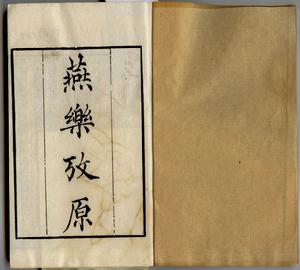 燕樂攷原